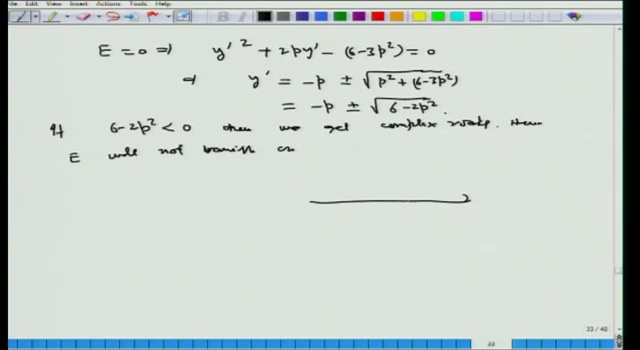 File View Insert Actions Tools Help
E = 0 ⇒ y'² + 2py' - (6-3p²) = 0
⇒ y' = -p ± √(p² + (6-3p²))
= -p ± √(6-2p²).
If 6-2p² < 0 then we get complex roots. Hence
E will not vanish
33 / 40
33